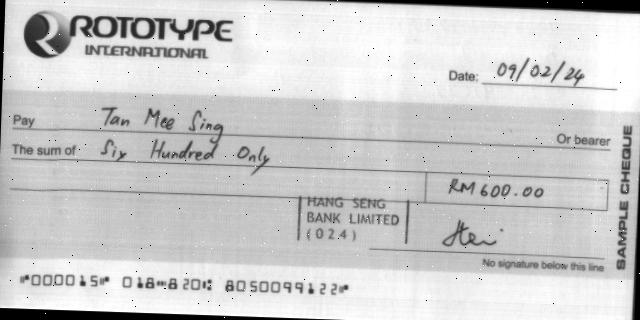 ROTOTYPE
INTERNATIONAL
Date: 09/02/24
Pay Tan Mee Sing Or bearer
The sum of Six Hundred Only
RM 600.00
HANG SENG
BANK LIMITED
(024)
No signature below this line
SAMPLE CHEQUE
"000015" 018"820 8050099122"